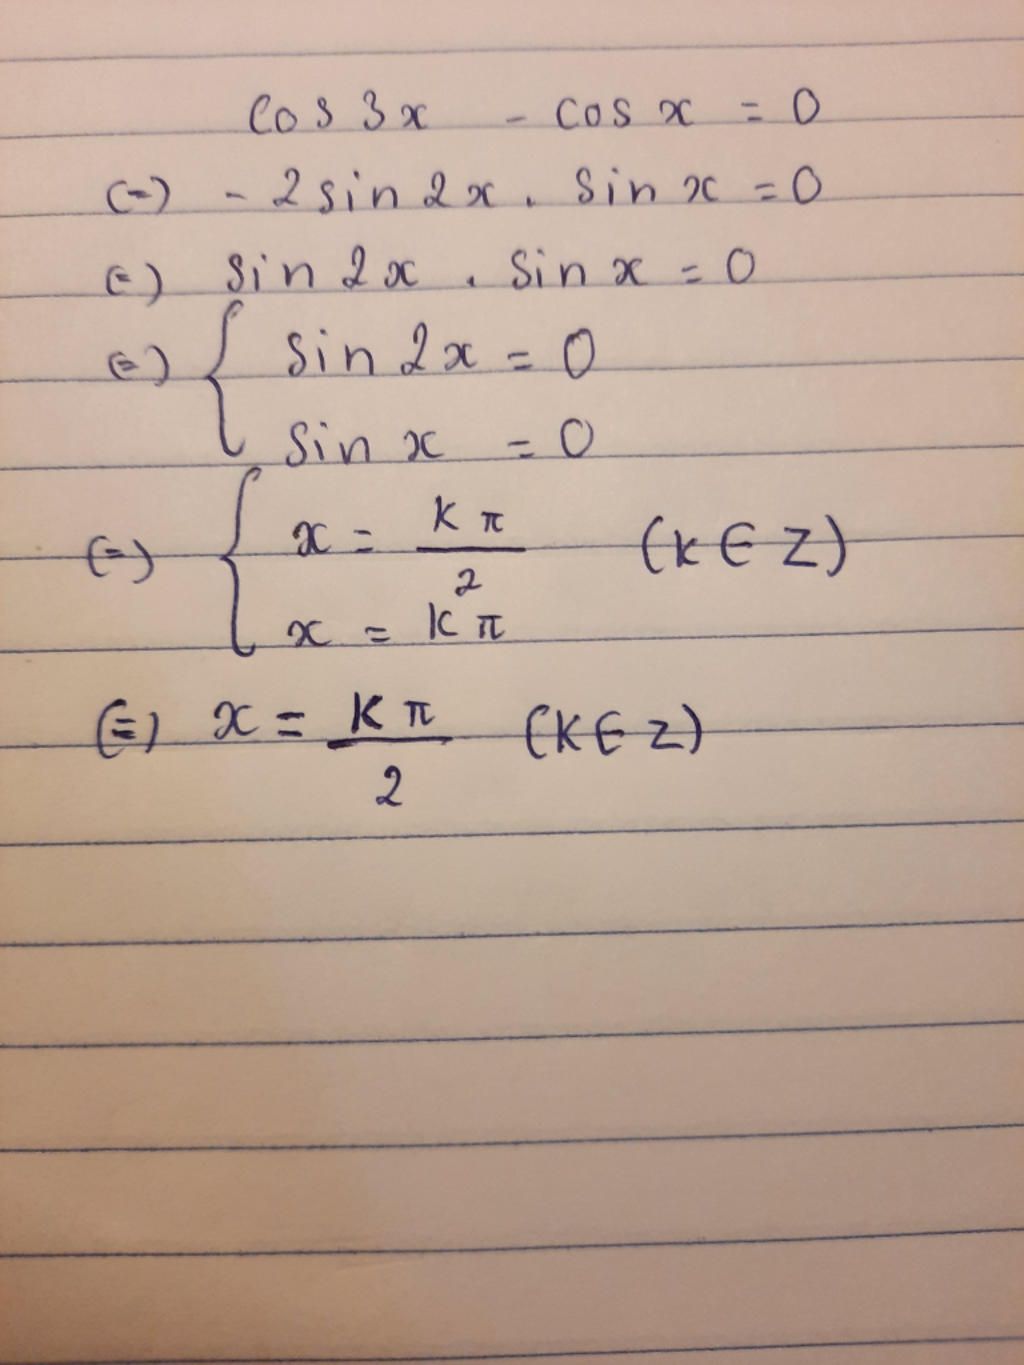 cos 3x - cos x = 0
(=) - 2 sin 2x . sin x = 0
(=) sin 2x . sin x = 0
(=) { sin 2x = 0
sin x = 0
(=) { x = kπ/2 (k ∈ Z)
x = kπ
(=) x = kπ/2 (k ∈ Z)